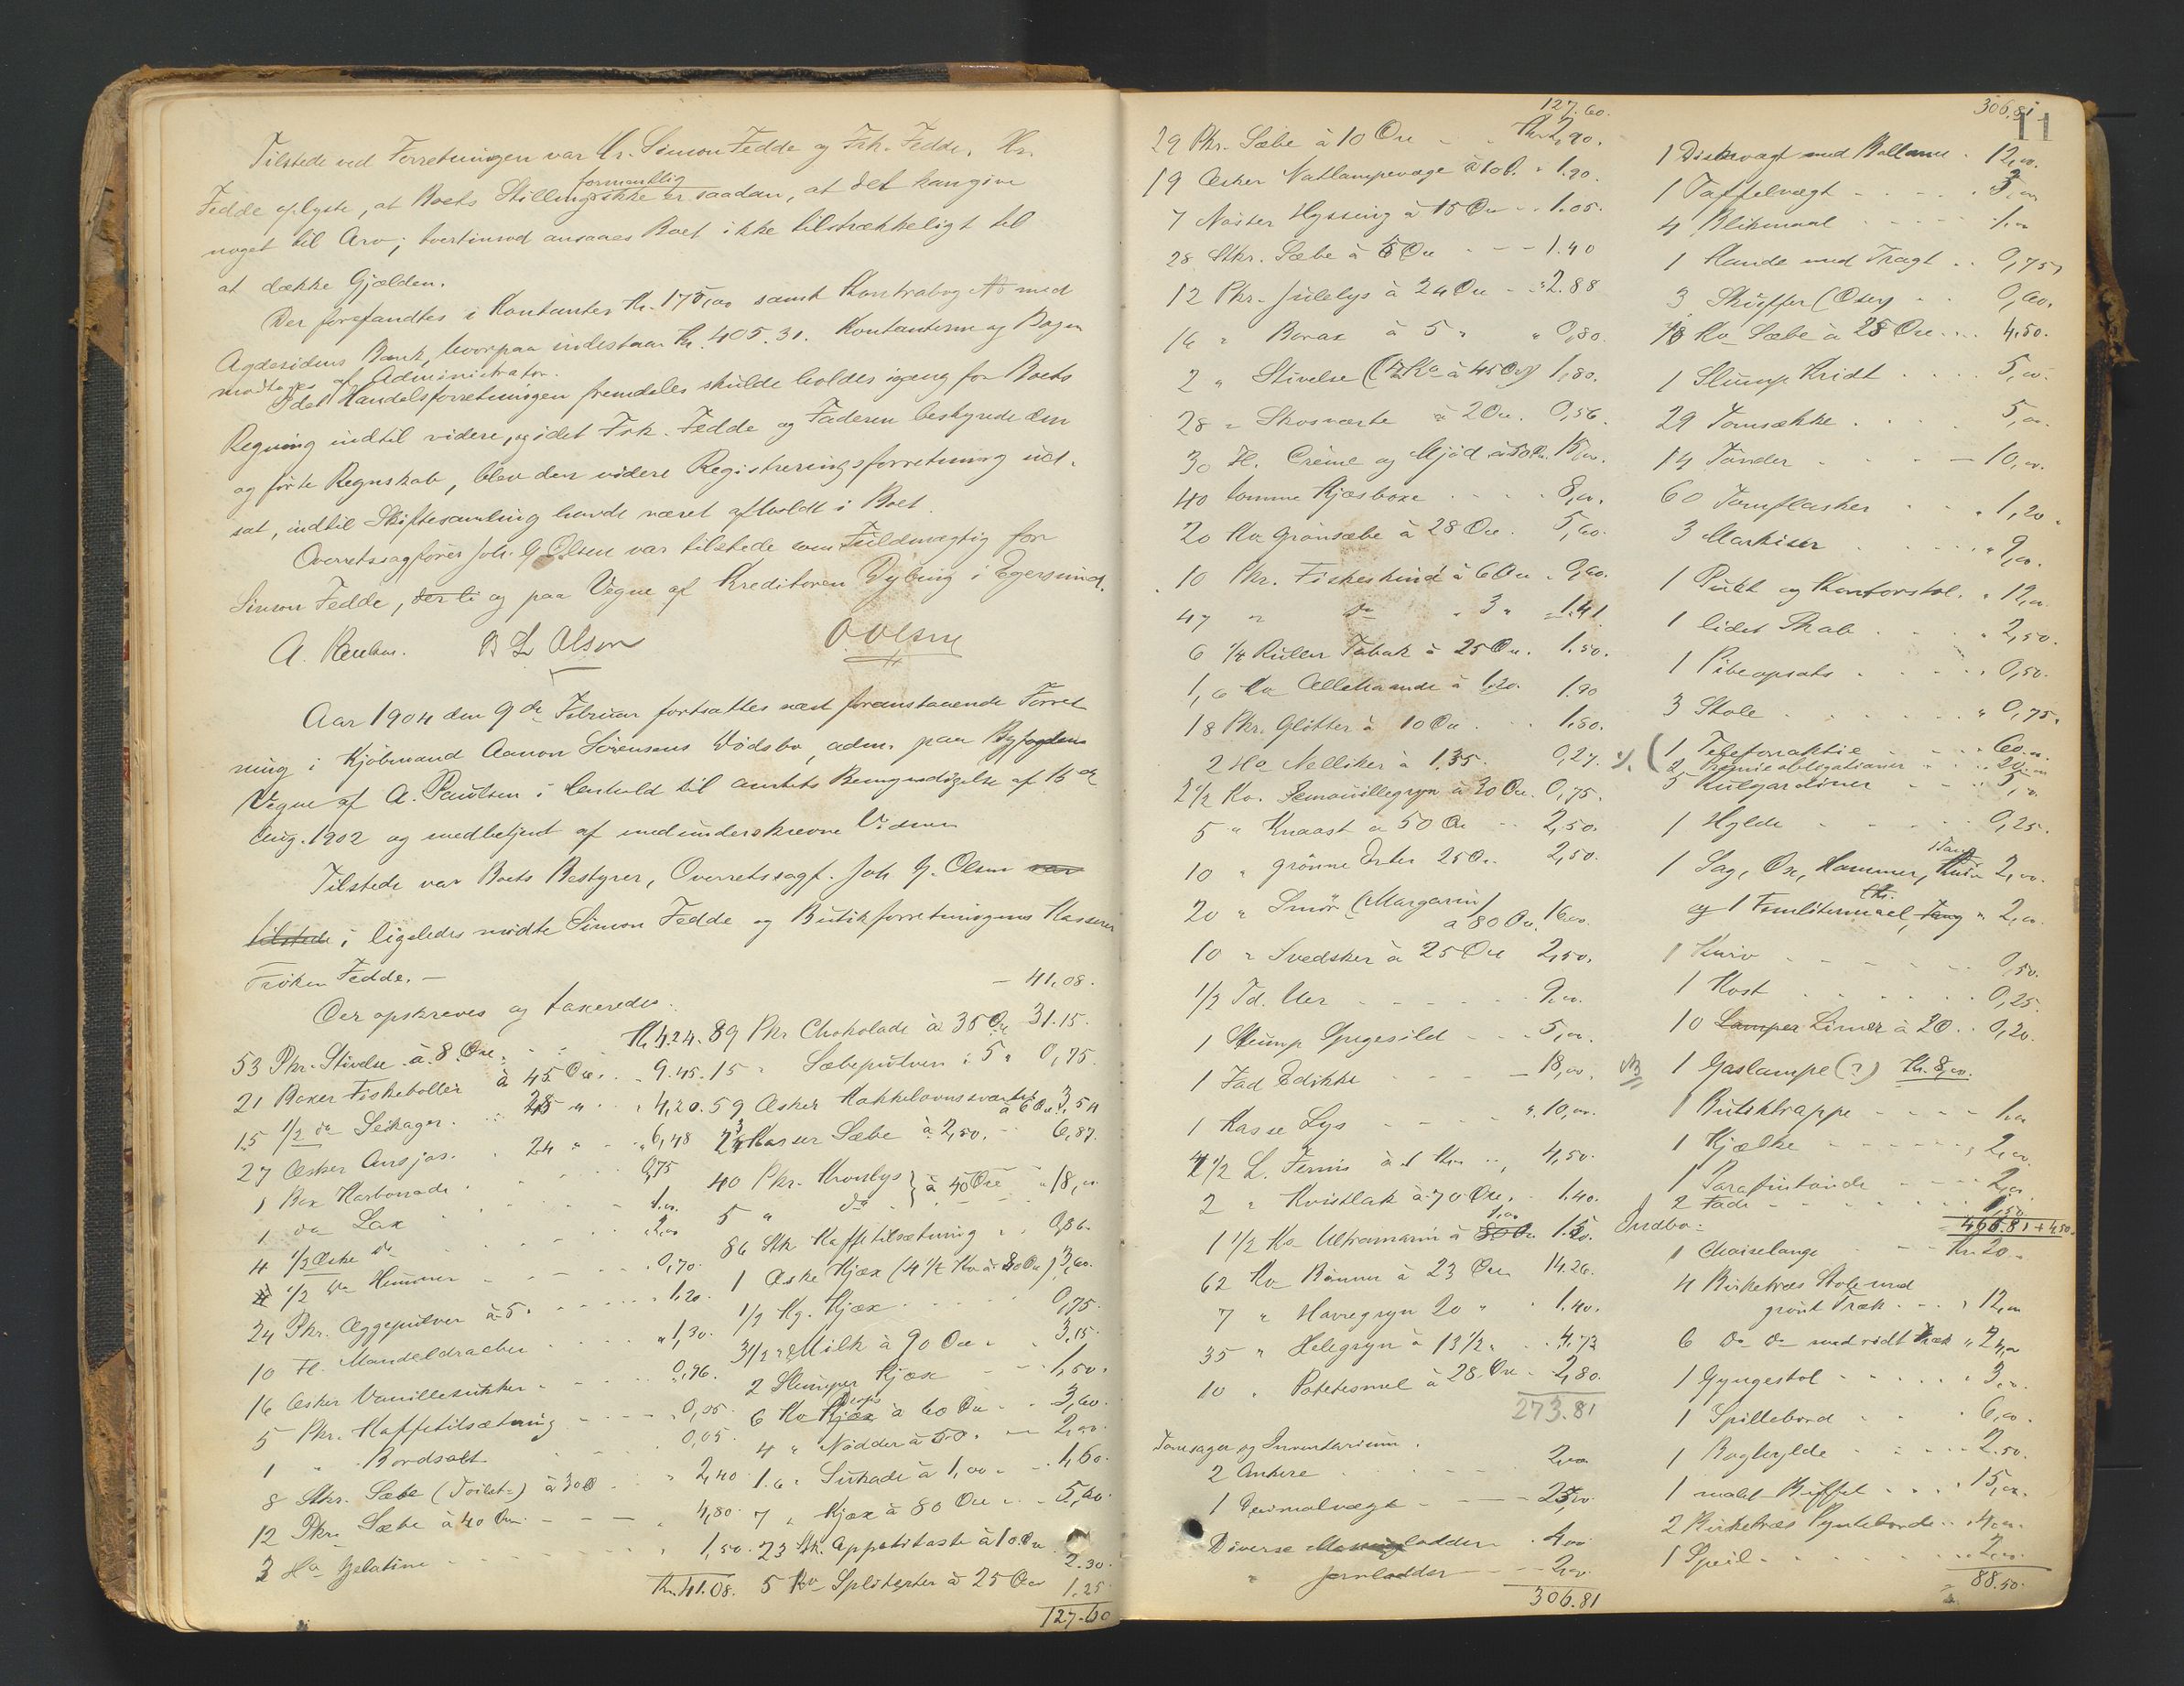 Tilstede ved Forretningen var Hr. Simon Fedde og Frk. Fedde. Hr.
Fedde oplyste, at Boets Stilling formentlig ikke er saadan, at det kan give
noget til Arv; tvertimod ansaaes Boet ikke tilstrækkeligt til
at dække Gjælden.
Der forefandtes i Kontanter Kr. 175,00 samt Kontrabog No med
Agdesidens Bank, hvorpaa indestaar Kr. 405.31. Kontanterne og Bogen
modtages af Administrator.
Idet Handelsforretningen fremdeles skulde holdes igang for Boets
Regning indtil videre, og idet Frk. Fedde og Faderen bestyrede den
og førte Regnskab, blev den videre Registreringsforretning ud-
sat, indtil Skiftesamling havde været afholdt i Boet.
Overretssagfører Joh. G. Olsen var tilstede som Fuldmægtig for
Simon Fedde, og paa Vegne af Kreditoren Dybing i Egersund.
A. B L Olson O Olsen
Aar 1904 den 9de Februar fortsattes næst foranstaaende Forret
ning i Kjøbmand Aanon Sørensens Dødsbo, adm. paa Byfogdens
Vegne af A. Paulsen i Henhold til Amtets Bemyndigelse af 15de
Aug. 1902 og medbetjent af medunderskrevne Vidner
Tilstede var Boets Bestyrer, Overretssagf. Joh G. Olsen var
tilstede; ligeledes mødte Simon Fedde og Butikforretningens Kasserer
Frøken Fedde. —
Der opskreves og taxeredes.
53 Pkr. Stivelse à 8 Øre Kr. 4.24.
21 Boxer Fiskeboller à 45 Øre 9.45.
15 1/2 do Seikager 28 " 4,20.
27 Æsker Ansjos 24 " 6,48
1 Box Karbonade 0,75
1 do Lax 1.00
4 1/2 Æske do 2,00
1/2 do Hummer 0,70.
24 Pkr. Æggepulver à 5 1.20.
10 Fl. Mandeldraaber 1,30.
16 Æsker Vanillesukker 0,96.
5 Pkr. Kaffetilsætning 0,05
1 " Bordsalt 0,05
8 Stkr. Sæbe (Toilet-) à 30 Ø 2,40
12 Pkr. Sæbe à 40 Øre 4,80.
3 Hg Gelatine 1,50.
Kr. 41.08.
— 41,08.
89 Pkr Chokolade à 35 Øre 31.15.
15 " Sæbepulver à 5 " 0,75.
59 Æsker Kakkelovnssværte à 6 Øre 3,54
Kasser Sæbe à 2,50. 6,87.
40 Pkr. Kronlys } à 40 Øre " 18,00
5 " do
86 Stk Kaffetilsætning " 0,86.
1 Æske Kjæx (4 1/2 Ko à 80 Øre) 3,60.
1/2 Kg. Kjæx 0,75.
3 1/2 " Milk à 90 Øre 3.15.
2 Slumper Kjæx 1,50.
6 Ko Drops Kjæx à 60 Øre 3,60.
4 " Nødder à 50 2,00.
1.6 " Sukade à 1,00 1,60.
7 " Kjæx à 80 Øre 5,60.
23 Stk. Appetitost à 10 Øre 2.30.
5 Ko Spliterter à 25 Øre 1.25
127.60
127.60.
29 Pkr. Sæbe à 10 Øre Kr. 2,90.
19 Æsker Natlampevæge à 10 Ø. 1.90.
7 Nøster Hyssing à 15 Øre 1.05.
28 Stkr. Sæbe à 5 Øre 1.40
12 Pkr. Julelys à 24 Øre 2.88
16 " Borax à 5 " 0,80.
2 " Stivelse (4 Ko à 45 Øre) 1,80.
28 " Skosværte à 2 Øre. 0,56.
30 Fl. Crême og Mjød à 50 Øre. 15,00.
40 tomme Kjæsboxe 8,00.
20 Ko Grønsæbe à 28 Øre. 5,60.
10 Pkr. Fiskeskind à 6 Øre 0,60.
47 " do " 3 " 1.41.
6 1/4 Ruller Tobak à 25 Øre. 1.50.
1,6 Ko Allehaande à 1.20. 1.90
18 Pkr. Glitter à 10 Øre 1.80.
2 Hg Nelliker à 1.35. 0,27.
2 1/2 Ko. Semouillegryn à 30 Øre. 0,75.
5 " Knaost à 50 Øre 2,50.
10 " grønne Erter 25 Ør. 2,50.
20 " Smør (Margarin) à 80 Øre. 16,00.
10 " Svedsker à 25 Øre 2,50.
1/2 Td. Uer 9,00.
1 Slump Spegesild 5,00.
1 Fad Edikke 18,00.
1 Kasse Lys 10,00.
4 1/2 L. Fernis à 1 Kr. 4,50.
2 " Kvistlak à 70 Øre 1.40.
1 1/2 Ko Ultramarin à 80 Ø. 1,00 1.50.
62 Ko Bønner à 23 Øre 14.26.
7 " Havregryn 20 " 1.40.
35 " Helegryn à 13 1/2 " 4.73
10 " Potetesmel à 28 Øre 2,80.
273.81
Tomsager og Inventarium.
2 Ankere 2,00
1 Decimalvægt 25,00
Diverse lodder 4,00
" Jernlodder 2,00
306.81
306,81
11
1 Diskvægt med Ballance 12,00.
1 Taffelvægt 3,00
4 Blikmaal 1,00
1 Kande med Tragt 0,75
3 Skuffer (Øser) 0,60.
18 Ko Sæbe à 25 Øre 4,50.
1 Slump Kridt 5,00.
29 Tomsække 5,00.
14 Tønder 10,00.
60 Tomflasker 1,20.
3 Markiser 9,00.
1 Pult og Kontorstol 12,00
1 lidet Skab 2,50.
1 Pibeopsats 0,50.
3 Stole 0,75.
1 Telefonaktie 60,00
2 Præmieobligationer 20,00
5 Rulgardiner 5,00
1 Hylde 0,25.
1 Sag, Øx, Hammer, Tang Kniv 2,00.
og 1 Femlitermaal, Tang 2,00.
1 Kniv 0,50.
1 Kost 0,25.
10 Lamper Limer à 20 0,20.
NB 1 Gaslampe (?) Kr. 8,00.
1 Butiktrappe 1,00
1 Kjælke 2,00.
1 Parafintønde 2,00.
2 Fade 1,50
466.81 + 4.50.
Indbo:
1 Chaiselange Kr. 20.
4 Birketræs Stole med
grønt Træk 12,00
6 do do med rødt Træk " 24,00
1 Gyngestol 3,00.
1 Spillebord 6,00.
1 Boghylde 2.50.
1 malet Buffet 15,00.
2 Birketræs Pynteborde 4,00.
1 Speil 2,00.
88.50.